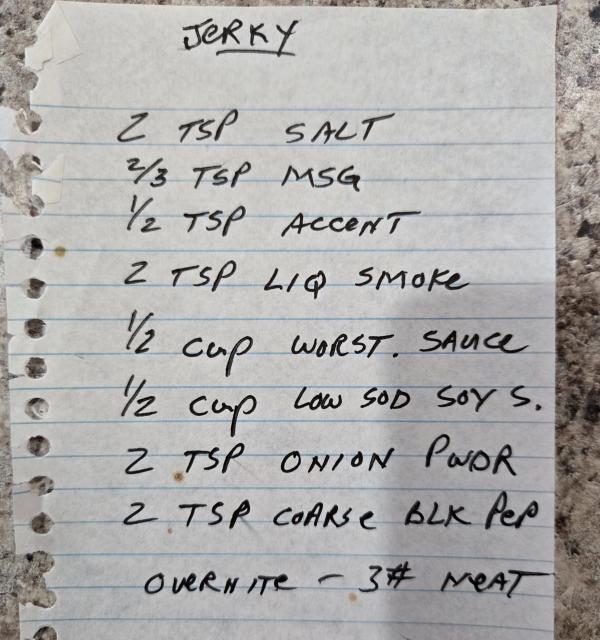 JERKY
2 TSP SALT
2/3 TSP MSG
1/2 TSP ACCENT
2 TSP LIQ SMOKE
1/2 cup WORST. SAUCE
1/2 cup LOW SOD SOY S.
2 TSP ONION PWDR
2 TSP COARSE BLK PEP
OVERNITE - 3# MEAT